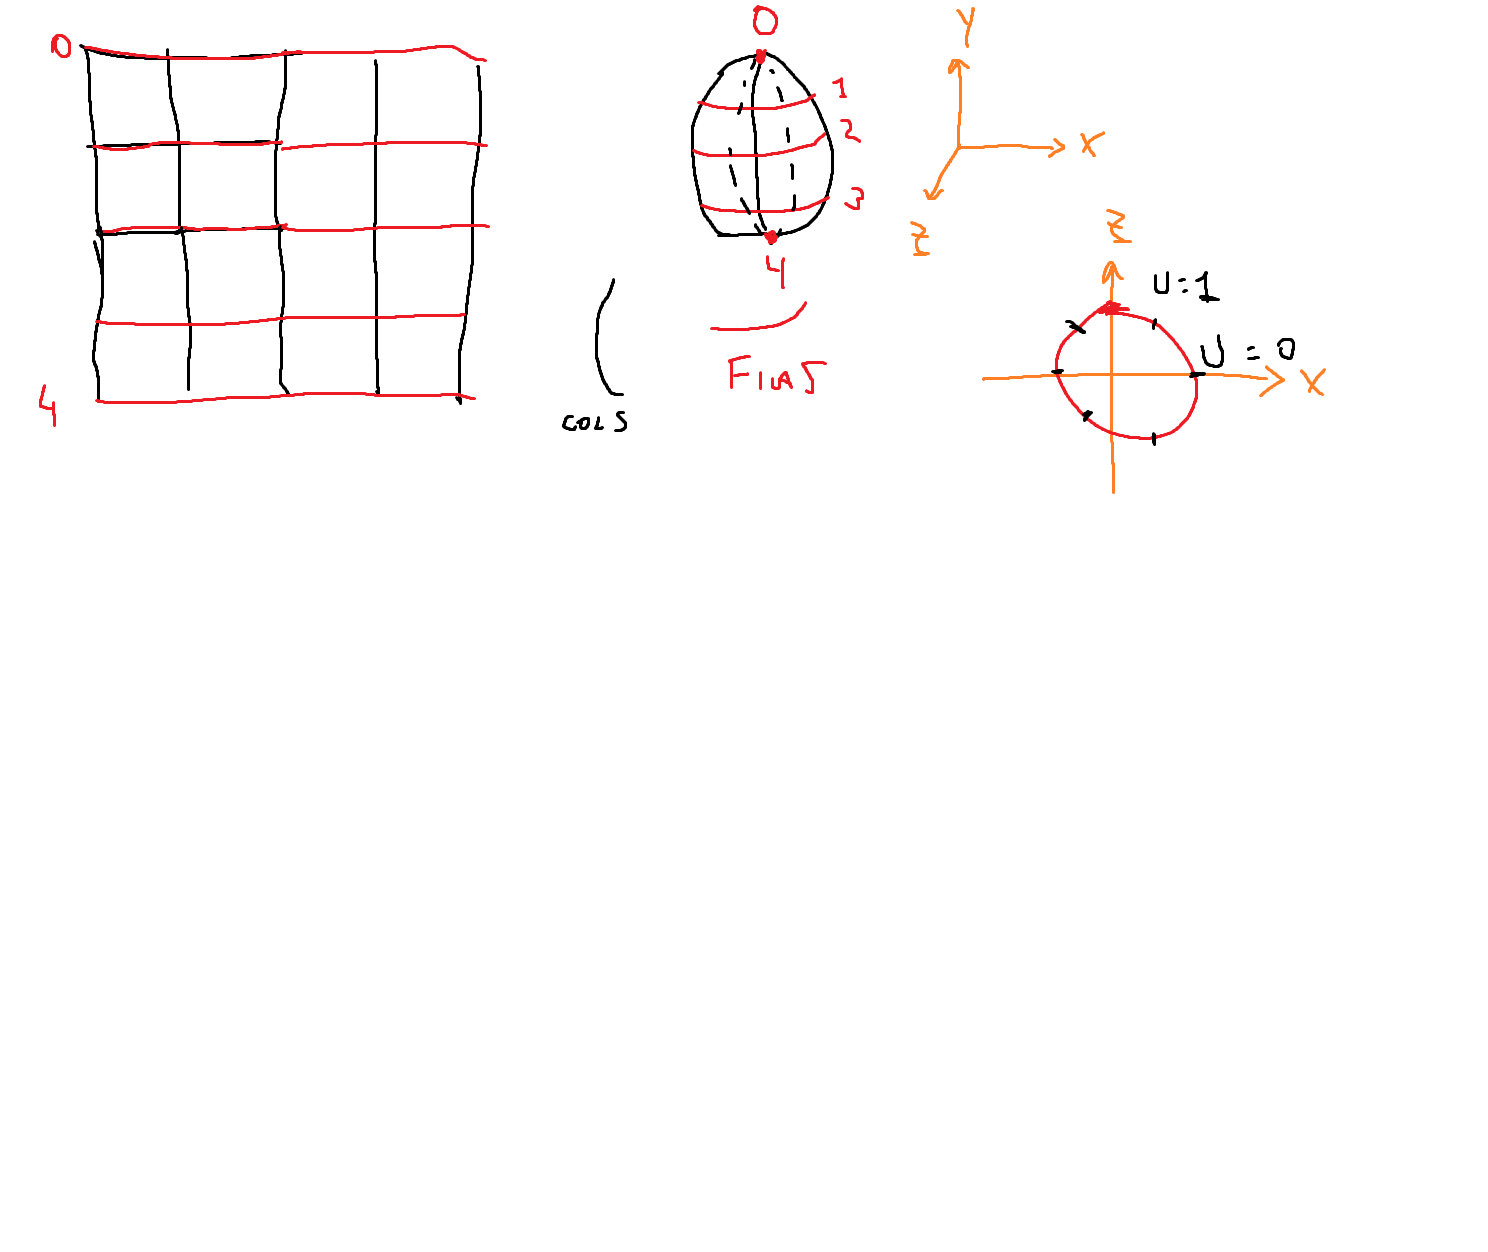 0
4
COLS
0
1
2
3
4
FILAS
Y
X
Z
Z
U=1
U=0
X